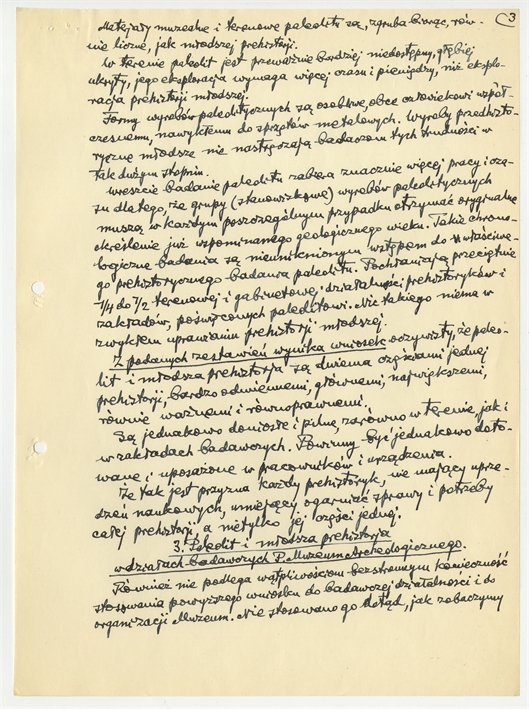 3
Materjały muzealne i terenowe paleolitu są, zgruba biorąc, rów-
nie liczne, jak młodszej prehistorji.
W terenie paleolit jest przeważnie bardziej niedostępny, głębiej
ukryty, jego eksploracja wymaga więcej czasu i pieniędzy, niż eksplo-
racja prehistorji młodszej.
Formy wyrobów paleolitycznych są osobliwe, obce człowiekowi współ-
czesnemu, nawykłemu do sprzętów metalowych. Wyroby przedhisto-
ryczne młodsze nie nastręczają badaczom tych trudności w
tak dużym stopniu.
Wreszcie badanie paleolitu zabiera znacznie więcej pracy i cza-
su dlatego, że grupy (stanowiskowe) wyrobów paleolitycznych
muszą w każdym poszczególnym przypadku otrzymać oryginalne
określenie już wspomnianego geologicznego wieku. Takie chrono-
logiczne badania są nieuniknionym wstępem do właściwe-
go prehistorycznego badania paleolitu. Pochłaniają przeciętnie
1/4 do 1/2 terenowej i gabinetowej działalności prehistoryków i
zakładów, poświęconych paleolitowi. Nic takiego niema w
zwykłem uprawianiu prehistorji młodszej.
Z podanych zestawień wynika wniosek oczywisty, że paleo-
lit i młodsza prehistorja są dwiema częściami jednej
prehistorji, bardzo odmiennemi, głównemi, największemi,
równie ważnemi i równouprawnemi.
Są jednakowo doniosłe i pilne, zarówno w terenie, jak i
w zakładach badawczych. Powinny być jednakowo doto-
wane i uposażone w pracowników i urządzenia.
Że tak jest przyzna każdy prehistoryk, nie mający uprze-
dzeń naukowych, umiejący ogarniać sprawy i potrzeby
całej prehistorji, a nietylko jej części jednej.
3. Paleolit i młodsza prehistorja
w działach badawczych P. Muzeum Archeologicznego.
Również nie podlega wątpliwościom bezstronnym konieczność
stosowania powyższego wniosku do badawczej działalności i do
organizacji Muzeum. Nie stosowano go dotąd, jak zobaczymy